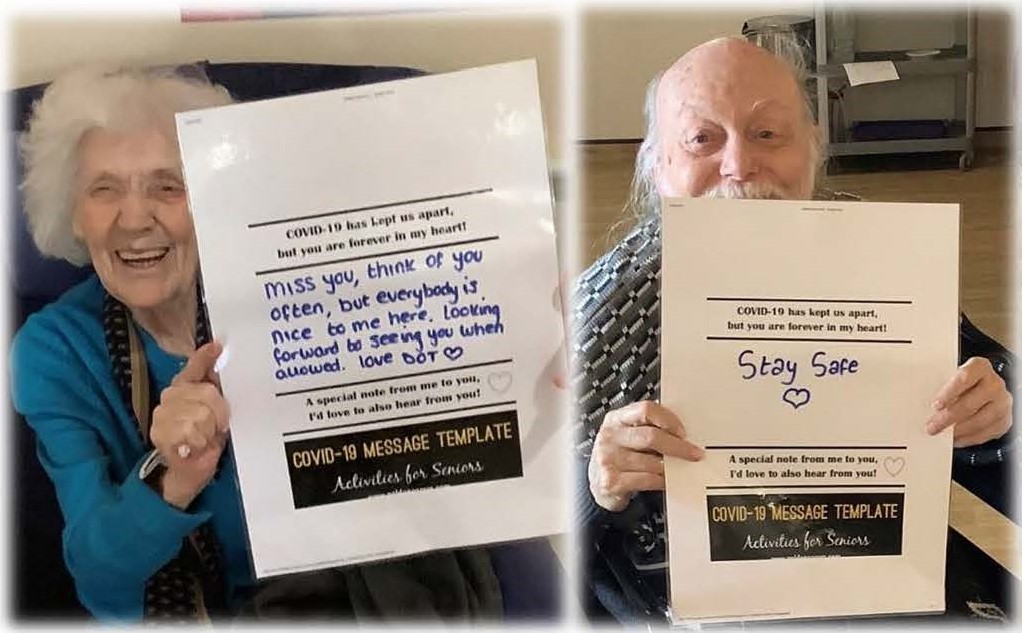 COVID-19 has kept us apart,
but you are forever in my heart!
Miss you, think of you
often, but everybody is
nice to me here. Looking
forward to seeing you when
allowed. love DOT
A special note from me to you,
I'd love to also hear from you!
COVID-19 MESSAGE TEMPLATE
Activities for Seniors
COVID-19 has kept us apart,
but you are forever in my heart!
Stay Safe
A special note from me to you,
I'd love to also hear from you!
COVID-19 MESSAGE TEMPLATE
Activities for Seniors